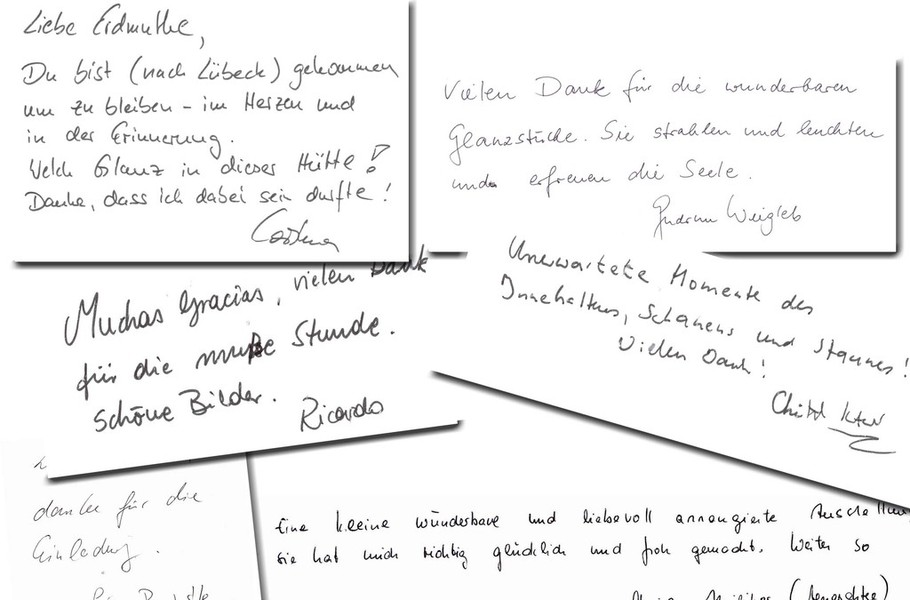 Liebe Erdmuthe,
Du bist (nach Lübeck) gekommen
um zu bleiben – im Herzen und
in der Erinnerung.
Welch Glanz in dieser Hütte!
Danke, dass ich dabei sein durfte!
Vielen Dank für die wunderbaren
Glanzstücke. Sie strahlen und leuchten
und erfreuen die Seele.
Gudrun Weigleb
Muchas Gracias, vielen Dank
für die muße Stunde.
Schöne Bilder.
Ricardo
Unerwartete Momente des
Innehaltens, Schauens und Staunens!
Vielen Dank!
danke für die
Einladung.
Eine kleine wunderbare und liebevoll arrangierte
sie hat mich richtig glücklich und froh gemacht. Weiter so